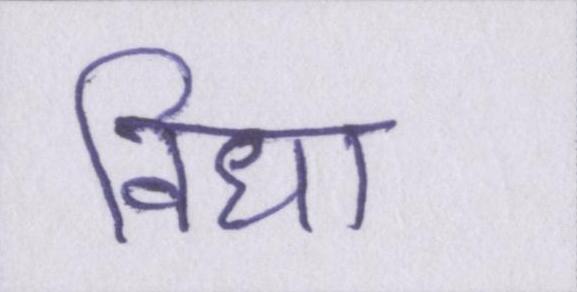 विधा